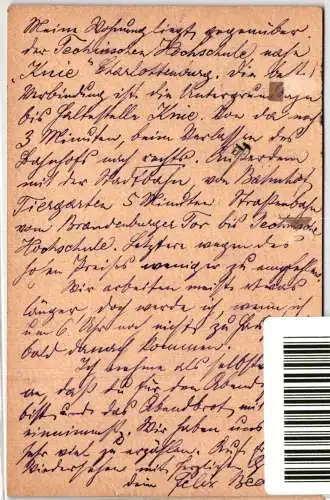 Meine Wohnung liegt gegenüber
der Technischen Hochschule nahe
"Knie" Charlottenburg. Die best
Verbindung ist die Untergrundbahn
bis Haltestelle Knie. Von da noch
3 Minuten, beim Verlassen des
Bahnhofs nach rechts. Außerdem
mit der Stadtbahn, von Bahnhof
Tiergarten 5 Minuten. Straßenbahn
vom Brandenburger Tor bis Technische
Hochschule. Letztere wegen des
hohen Preises weniger zu empfehlen.
Wir arbeiten meist etwas
länger, doch werde ich, wenn ich
um 6 Uhr noch nichts zu
bald danach kommen.
Ich nehme als selbst
an, daß du für den Abend
bist und das Abendbrot mit
einnimmst. Wir haben uns
sehr viel zu erzählen. Auf
Wiedersehen mit herzlich
dein Felix